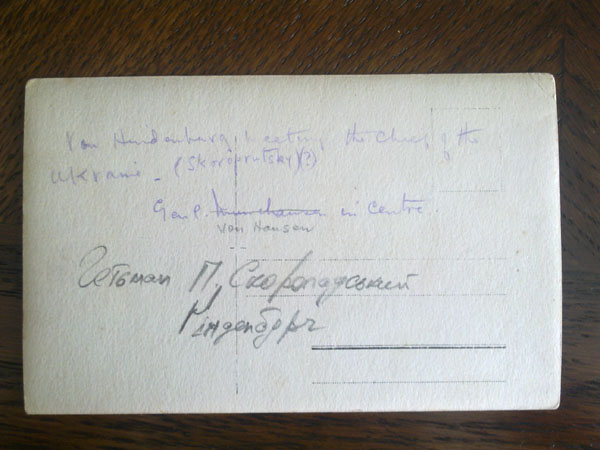 Von Hindenburg, meeting the Chief of the
Ukraine - (Skoroprutsky)(?)
Genl. in centre.
von Hausen
Гетьман П. Скоропадський
Гінденбург